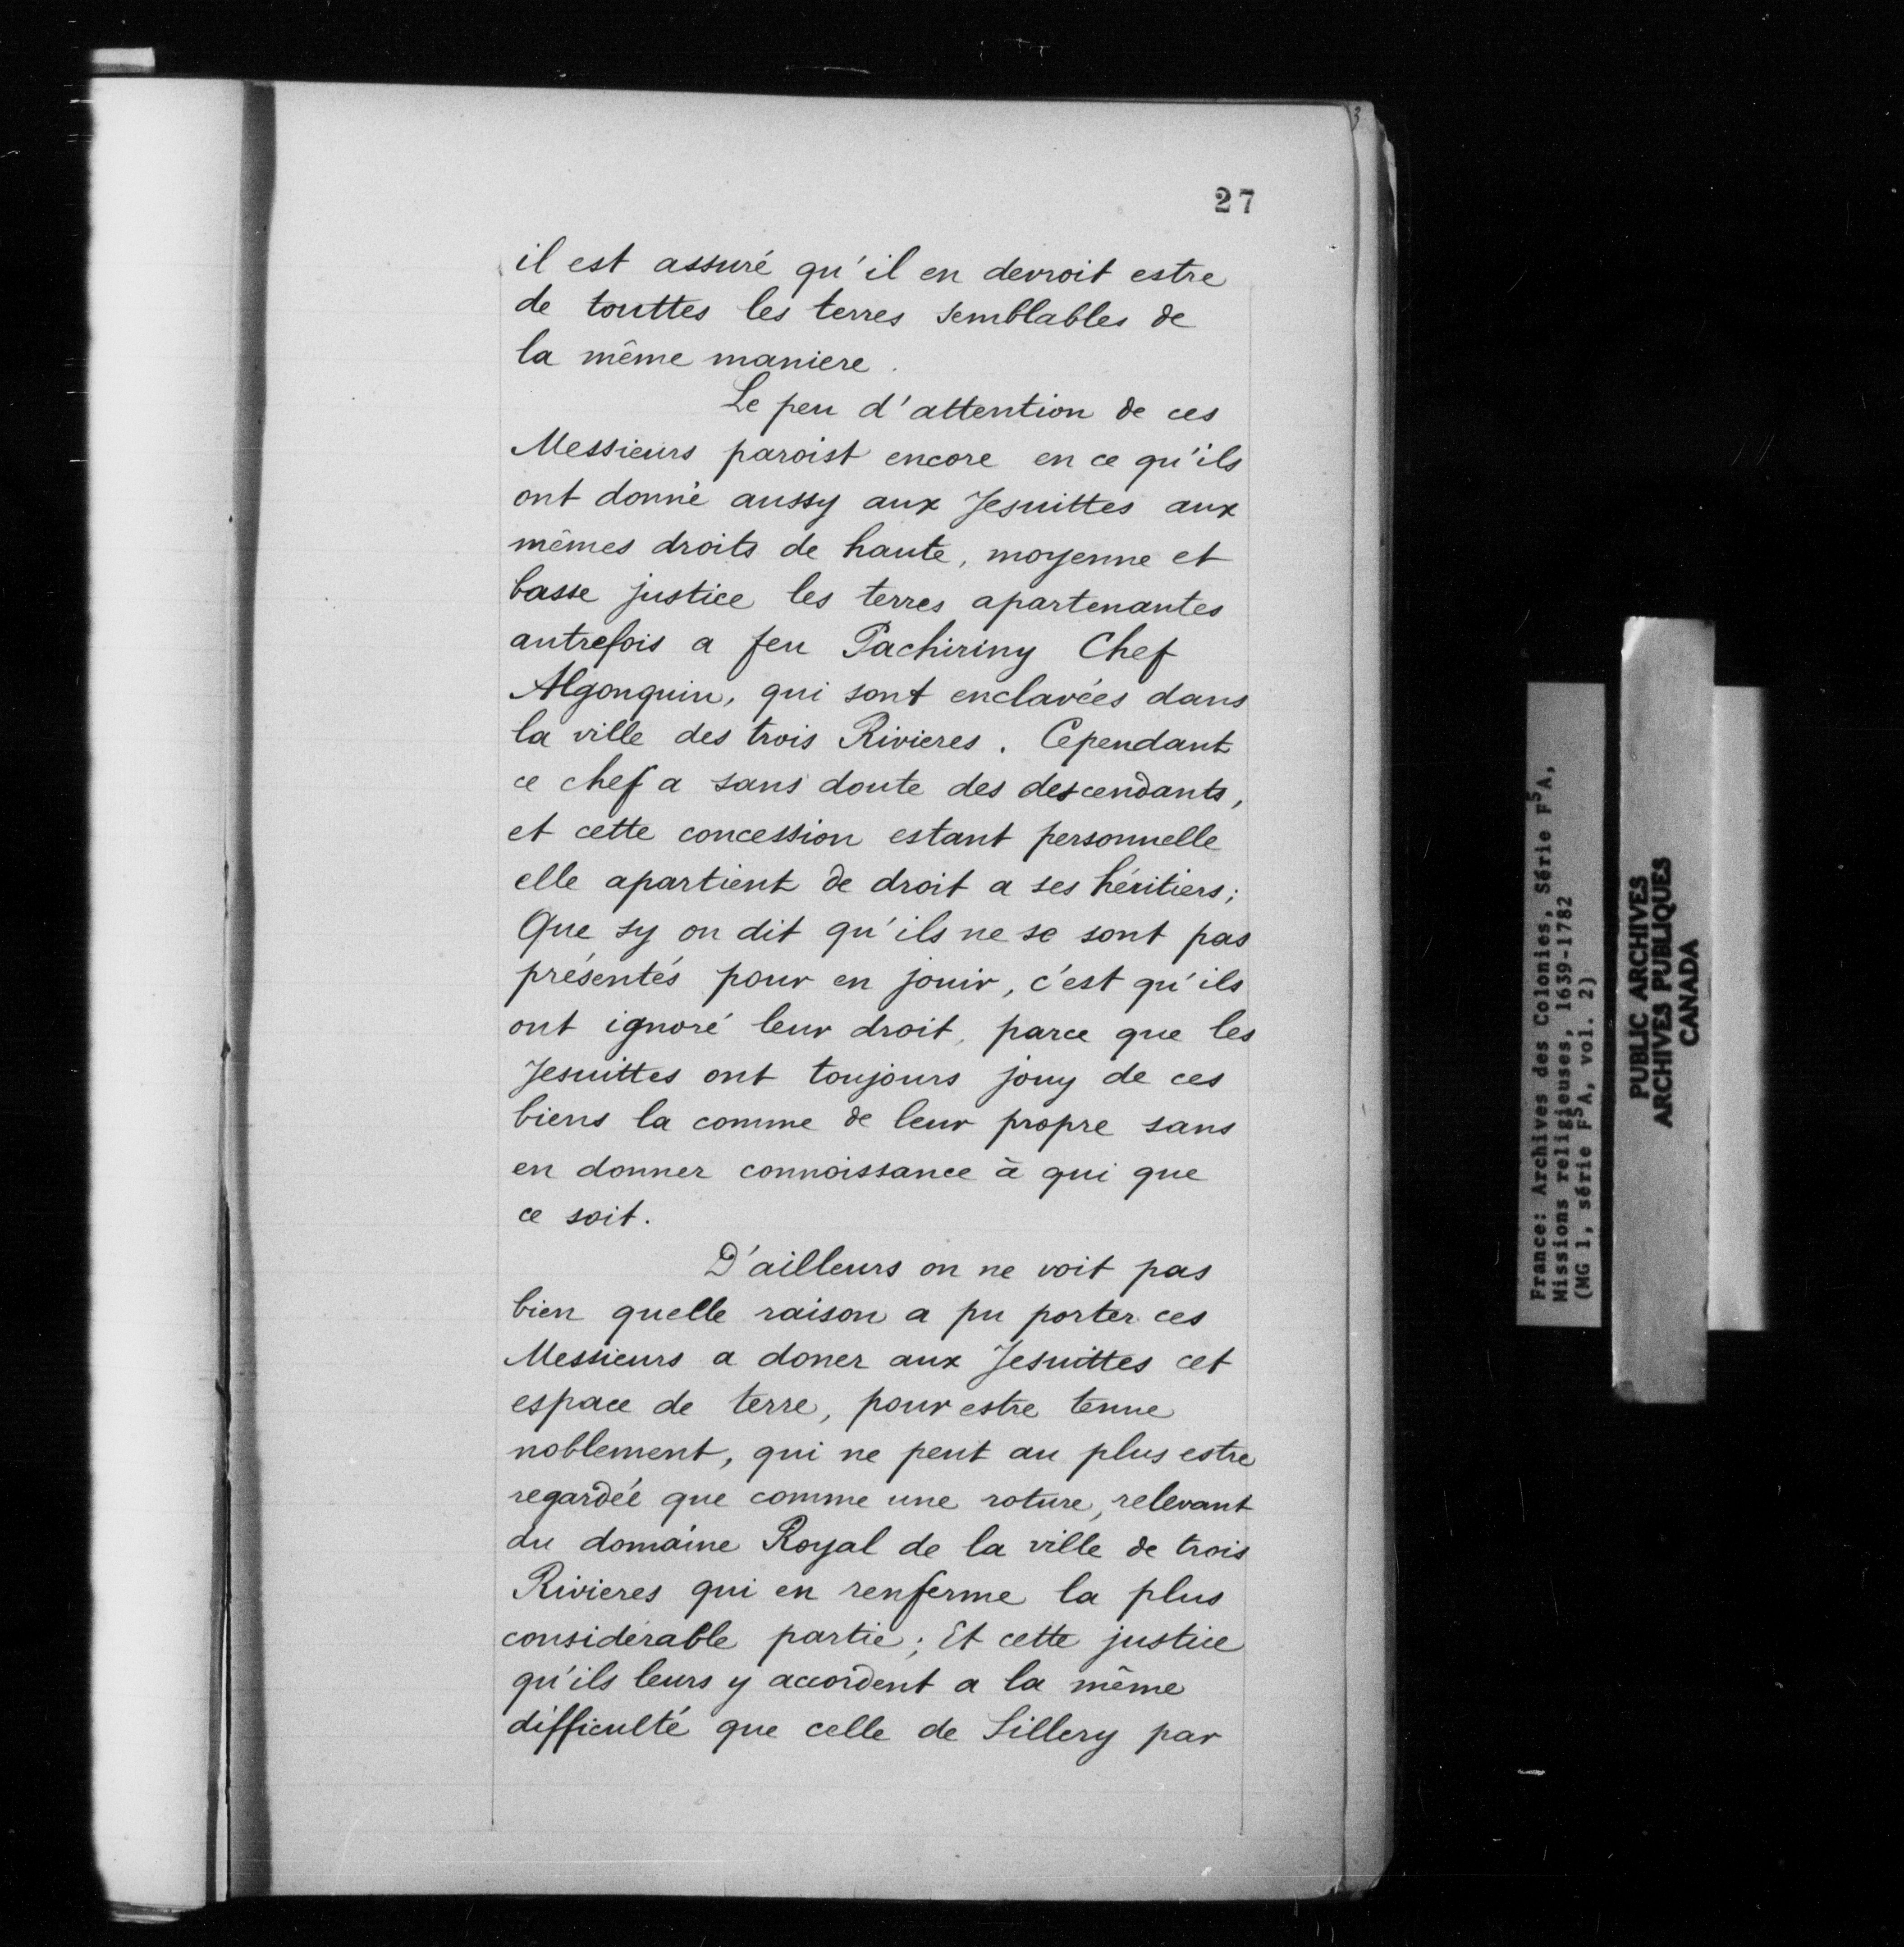 27
il est assuré qu'il en devroit estre
de touttes les terres semblables de
la même maniere.
Le peu d'attention de ces
Messieurs paroist encore en ce qu'ils
ont donné aussy aux Jesuittes aux
mêmes droits de haute, moyenne et
basse justice les terres apartenantes
autrefois a feu Pachiriny Chef
Algonquin, qui sont enclavées dans
la ville des trois Rivieres. Cependant
ce chef a sans doute des descendants,
et cette concession estant personnelle
elle apartient de droit a ses héritiers;
Que sy on dit qu'ils ne se sont pas
présentés pour en jouir, c'est qu'ils
ont ignoré leur droit, parce que les
Jesuittes ont toujours jouy de ces
biens la comme de leur propre sans
en donner connoissance à qui que
ce soit.
D'ailleurs on ne voit pas
bien quelle raison a pu porter ces
Messieurs a doner aux Jesuittes cet
espace de terre, pour estre tenue
noblement, qui ne peut au plus estre
regardée que comme une roture, relevant
du domaine Royal de la ville de trois
Rivieres qui en renferme la plus
considérable partie; Et cette justice
qu'ils leurs y accordent a la même
difficulté que celle de Sillery par
France: Archives des Colonies, Série F5A,
Missions religieuses, 1639-1782
(MG 1, série F5A, vol. 2)
PUBLIC ARCHIVES
ARCHIVES PUBLIQUES
CANADA